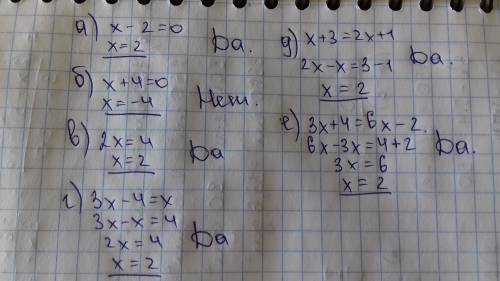 а) x - 2 = 0
x = 2
Да.
б) x + 4 = 0
x = -4
Нет.
в) 2x = 4
x = 2
Да
г) 3x - 4 = x
3x - x = 4
2x = 4
x = 2
Да
д) x + 3 = 2x + 1
2x - x = 3 - 1
x = 2
Да.
е) 3x + 4 = 6x - 2.
6x - 3x = 4 + 2
3x = 6
x = 2
Да.